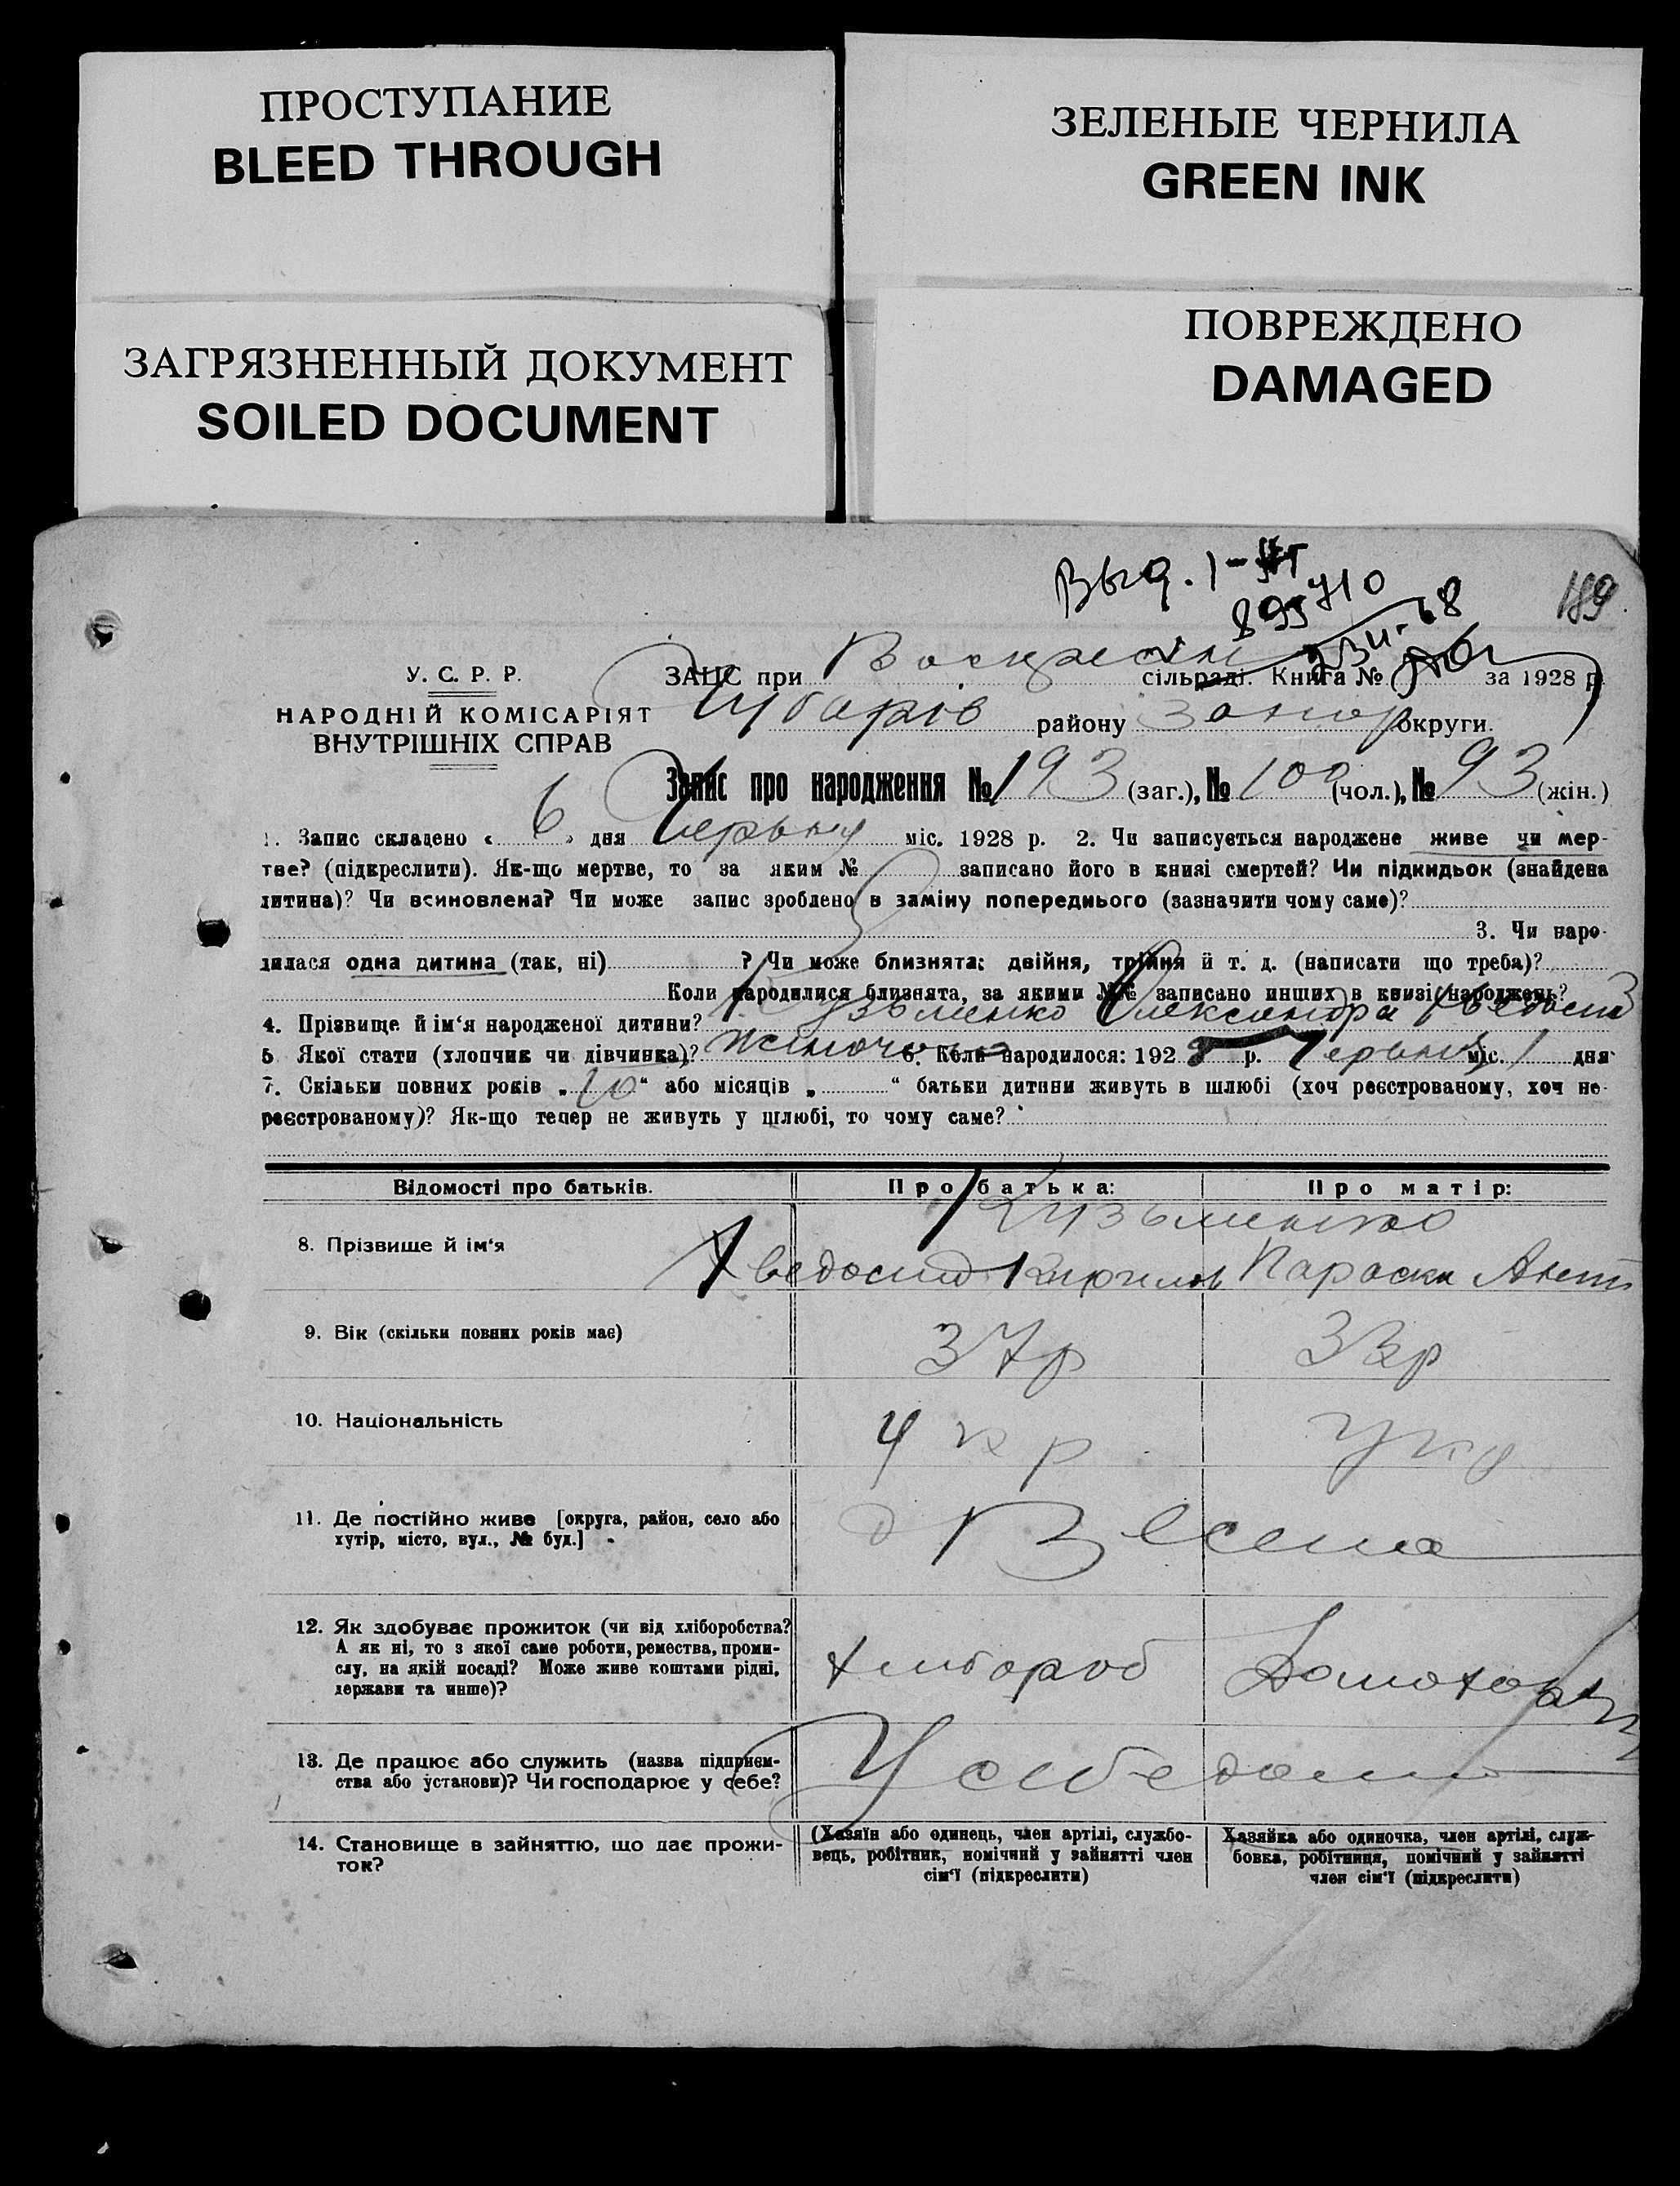 ПРОСТУПАНИЕ
BLEED THROUGH
ЗЕЛЕНЫЕ ЧЕРНИЛА
GREEN INK
ЗАГРЯЗНЕННЫЙ ДОКУМЕНТ
SOILED DOCUMENT
ПОВРЕЖДЕНО
DAMAGED
Выд. I-
189
У. С. Р. Р.
НАРОДНІЙ КОМІСАРІЯТ
ВНУТРІШНІХ СПРАВ
ЗАЦС при Воскресін сільраді. Книга № за 1928 р.
Чубарів району Запор округи.
Запис про народження № 193 (заг.), № 100 (чол.), № 93 (жін.)
1. Запис складено « 6 » дня Червня міс. 1928 р. 2. Чи записується народжене живе чи мер-
тве? (підкреслити). Як-що мертве, то за яким № записано його в книзі смертей? Чи підкидьок (знайдена
дитина)? Чи всиновлена? Чи може запис зроблено в заміну попереднього (зазначити чому саме)?
3. Чи наро-
дилася одна дитина (так, ні) ? Чи може близнята: двійня, трійня й т. д. (написати що треба)?
Коли народилися близнята, за якими №№ записано инших в книзі народжень?
4. Прізвище й ім‘я народженої дитини? Кузьменко Олександра
5. Якої стати (хлопчик чи дівчинка)? жіночої 6. Коли народилося: 1928 р. Червня міс. 1 дня
7. Скільки повних років „ 10 “ або місяців „ “ батьки дитини живуть в шлюбі (хоч реєстрованому, хоч не-
реєстрованому)? Як-що тепер не живуть у шлюбі, то чому саме?
Відомості про батьків. Про батька: Про матір:
8. Прізвище й ім‘я
Кузьменко
Хведосій Кирилов Параска Ант
9. Вік (скільки повних років має) 37р 33р
10. Національність укр укр
11. Де постійно живе [округа, район, село або
хутір, місто, вул., № буд.]
12. Як здобуває прожиток (чи від хліборобства?
А як ні, то з якої саме роботи, ремества, проми-
слу, на якій посаді? Може живе коштами рідні,
держави та инше)?
хлибороб Домохоз
13. Де працює або служить (назва підприєм-
ства або установи)? Чи господарює у себе?
У себе дома
14. Становище в зайняттю, що дає прожи-
ток?
(Хазяїн або одинець, член артілі, службо-
вець, робітник, помічний у зайнятті член
сім‘ї (підкреслити)
Хазяйка або одиночка, член артілі, служ-
бовка, робітниця, помічний у зайнятті
член сім‘ї (підкреслити)